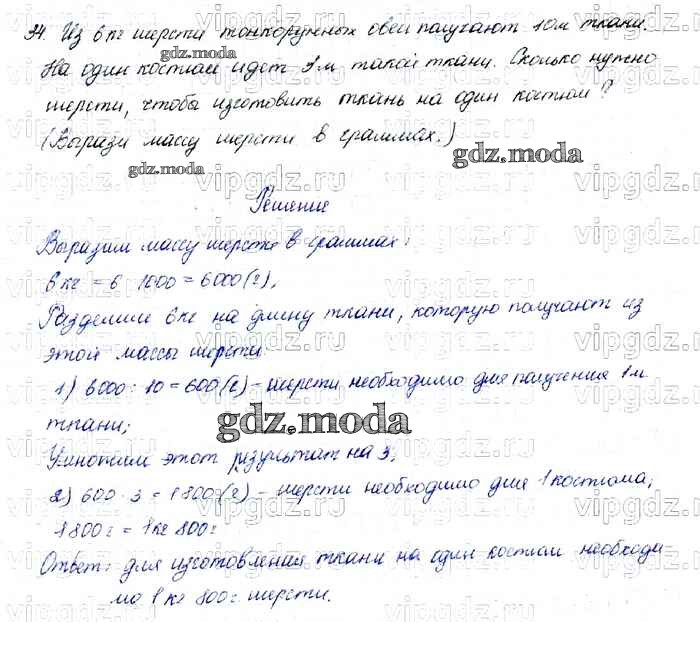 34. Из 6 кг шерсти тонкорунных овец получают 10 м ткани.
На один костюм идет 3 м такой ткани. Сколько нужно
шерсти, чтобы изготовить ткань на один костюм?
(Вырази массу шерсти в граммах.)
Решение
Выразим массу шерсти в граммах:
6 кг = 6 · 1000 = 6000 (г).
Разделим 6 кг на длину ткани, которую получают из
этой массы шерсти:
1) 6000 : 10 = 600 (г) – шерсти необходимо для получения 1 м
ткани;
Умножим этот результат на 3.
2) 600 · 3 = 1800 (г) – шерсти необходимо для 1 костюма;
1800 г = 1 кг 800 г
Ответ: для изготовления ткани на один костюм необходи
мо 1 кг 800 г шерсти.
gdz.moda
gdz.moda
gdz.moda
gdz.moda
vipgdz.ru